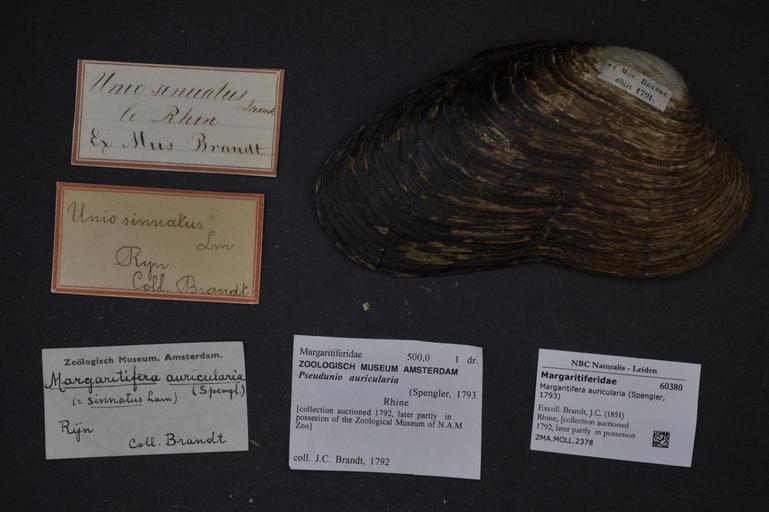 Unio sinuatus
Lamk
le Rhin
Ex Mus Brandt
ex Mus. Brandt
obiit 1791.
Unio sinnatus
Lm
Ryn
Coll. Brandt
Zoölogisch Museum. Amsterdam.
Margaritifera auricularia
(= sinnatus Lam) (Spengl.)
Rijn
Coll. Brandt
Margaritiferidae 500,0 1 dr.
ZOOLOGISCH MUSEUM AMSTERDAM
Pseudunio auricularia
(Spengler, 1793
Rhine
[collection auctioned 1792, later partly in
possesion of the Zoological Museum of N.A.M
Zoo]
coll. J.C. Brandt, 1792
NBC Naturalis - Leiden
Margaritiferidae 60380
Margaritifera auricularia (Spengler,
1793)
Excoll. Brandt, J.C. (1851)
Rhine, [collection auctioned
1792, later partly in possesion
ZMA.MOLL.2378